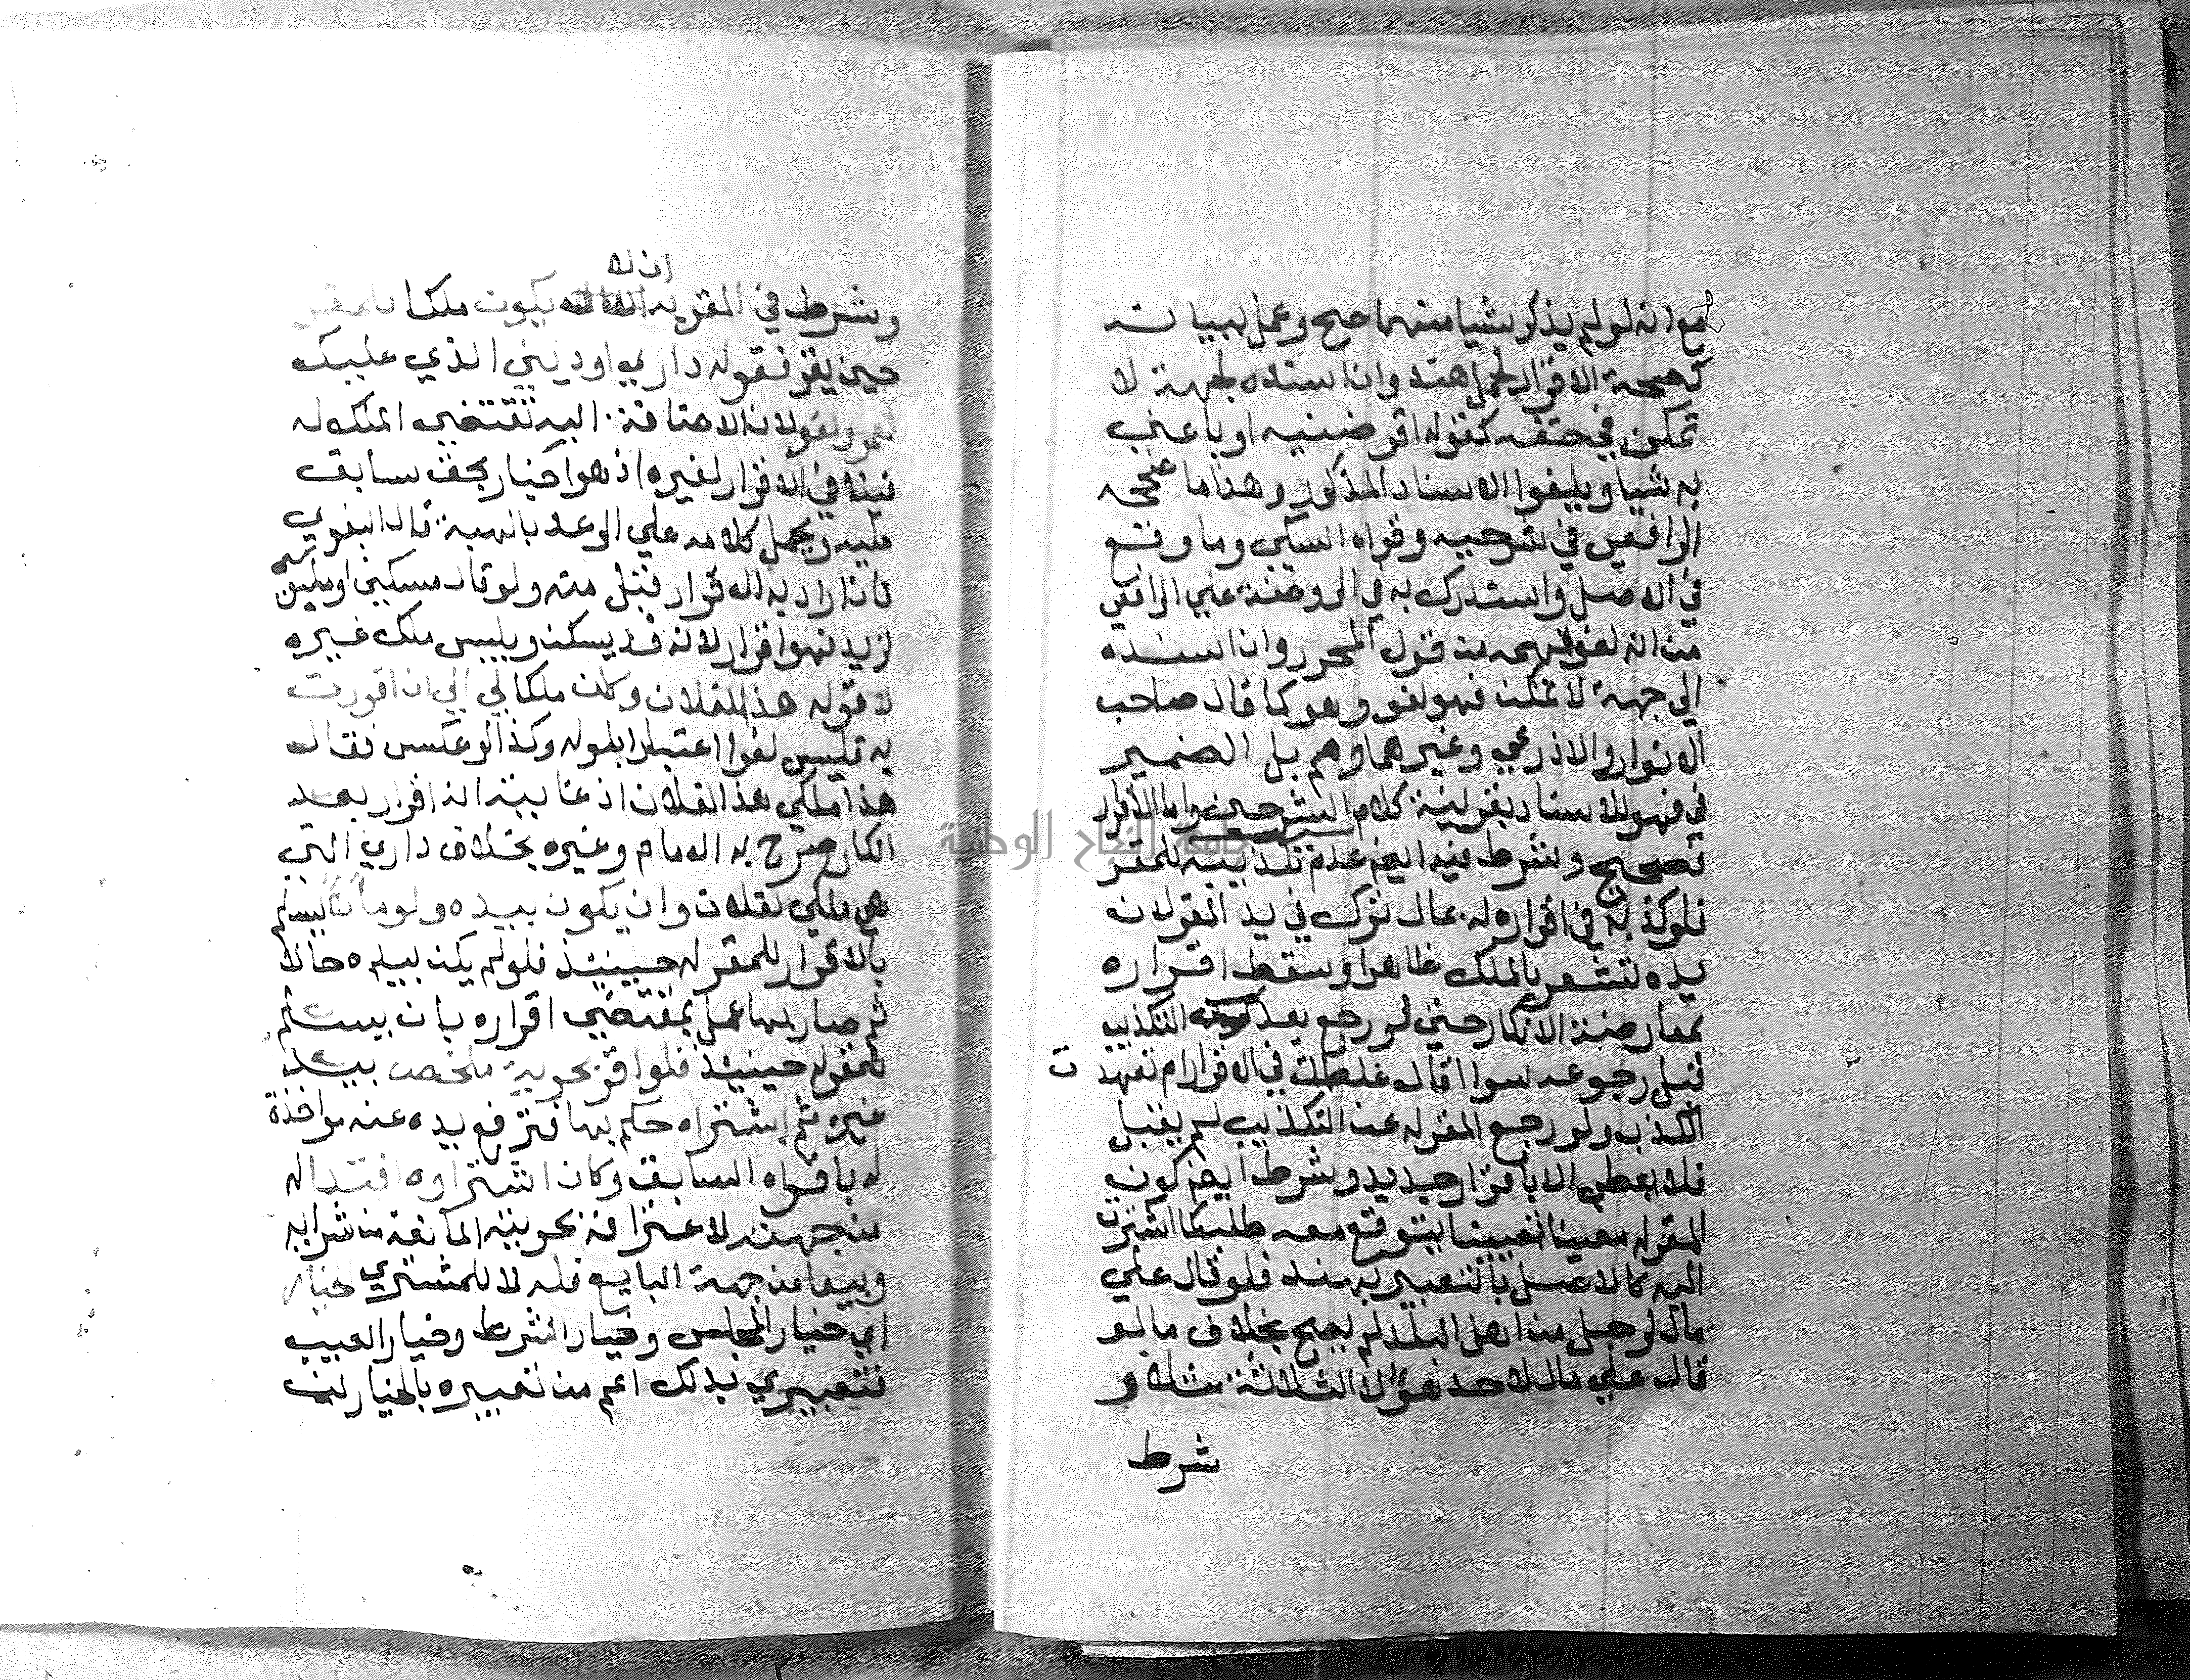 مع انه لو لم يذكر شيا منهما صح وعمل ببيانه
كصحة الاقرار لحمل هند وان اسنده لجهة لا
تمكن في حقه كقوله اقرضنيه او باعني
به شيا ويلغوا الاسناد المذكور وهذا ما صححه
الرافعي في شرحيه وقواه السبكي وما وقع
في الاصل واستدرك به في الروضة علي الرافعي
من انه لغو فهمه من قول المحرر وان اسنده
الي جهة لا تمكن فهو لغو وهو كما قال صاحب
الانوار والاذرعي وغيرهما وهم بل الضمير
في فهو للاسناد بقرينة كلام الشرحين واما الاقرار
فصحيح وشرط فيه ايضا عدم تكذيبه للمقر
فلو كذبه في اقراره له بمال ترك في يد المقر لان
يده تشعر بالملك ظاهرا وسقط اقراره
بمعارضة الانكار حتي لو رجع بعد التكذيب
قبل رجوعه سوا قال غلطت في الاقرار ام تعمدت
الكذب ولو رجع المقر له عن التكذيب لم يقبل
فلا يعطي الا باقرار جديد وشرط ايضا كون
المقر له معينا تعيينا يتوقع معه طلب كما اشرت
اليه كالاصل بالتعبير بهند فلو قال علي
مال لرجل من اهل البلد لم يصح بخلاف ما لو
قال علي مال لاحد هؤلا الثلاثة مثلا و
شرط
ان لا
وشرط في المقر به يكون ملكا للمقر
حين يقر فقوله داري او ديني الذي عليك
لعمرو لغو لان الاضافة اليه تقتضي الملك له
فينافي الاقرار لغيره اذ هو اخبار بحق سابق
عليه ويحمل كلامه علي الوعد بالهبة قال البغوي
فان اراد به الاقرار قبل منه ولو قال مسكني او ملبسي
لزيد فهو اقرار لانه قد يسكن ويلبس ملك غيره
لا قوله هذا لفلان وكان ملكا لي الي ان اقررت
به فليس لغوا اعتبارا باوله وكذا لو عكس فقال
هذا ملكي هذا لفلان اذ غايته انه اقرار بعد
انكار صرح به الامام وغيره بخلاف داري التي
هي ملكي لفلان وان يكون بيده ولو مالا ليسلم
بالاقرار للمقر له حينيذ فلو لم يكن بيده حالا
ثم صار بها عمل بمقتضي اقراره بان يسلم
للمقر له حينيذ فلو اقر بحرية شخص بيد
غيره ثم اشتراه حكم بها فترفع يده عنه مواخذة
له باقراره السابق وكان اشتراوه افتدا له
من جهته لاعترافه بحريته المانعة من شرايه
وبيعا من جهة البايع فله لا للمشتري الخيار
اي خيار المجلس وخيار الشرط وخيار العيب
فتعبيري بذلك اعم من تعبيره بالخيارين